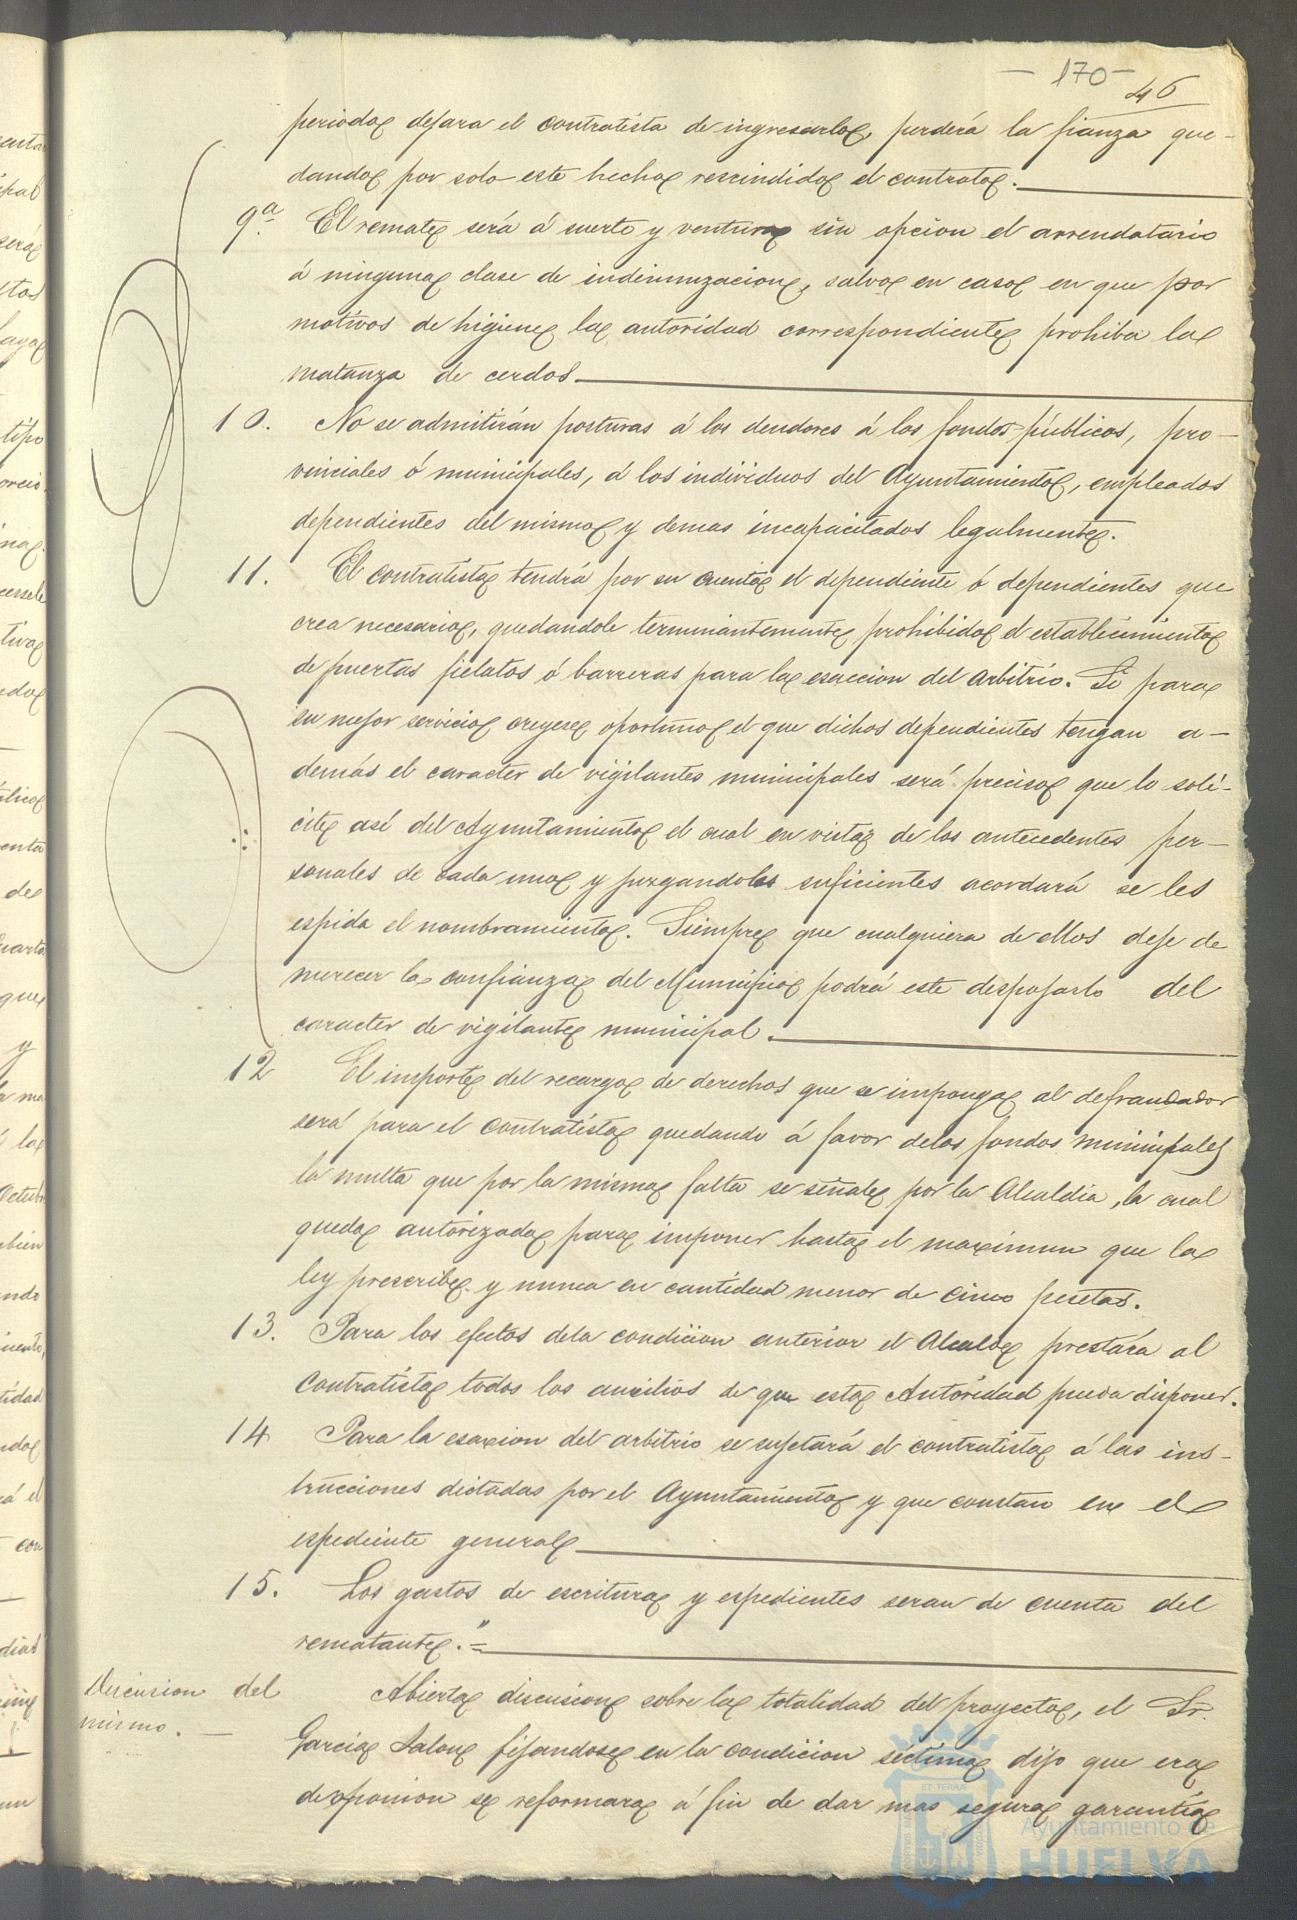 -170-
46
periodo dejara el contratista de ingresarlo, perderá la fianza que-
dando por solo este hecho rescindido el contrato.
9ª. El remate será á suerte y ventura sin opcion el arrendatario
á ninguna clase de indemnizacion, salvo en caso en que por
motivos de higiene la autoridad correspondiente prohiba la
matanza de cerdos.
10. No se admitirán posturas á los deudores á los fondos públicos, pro-
vinciales ó municipales, á los individuos del Ayuntamiento, empleados
dependientes del mismo y demas incapacitados legalmente.
11. El contratista tendrá por su cuenta el dependiente ó dependientes que
crea necesario, quedandole terminantemente prohibido el establecimiento
de puertas fielatos ó barreras para la esaccion del arbitrio. Si para
su mejor servicio creyese oportuno el que dichos dependientes tengan a-
demás el caracter de vigilantes municipales será preciso que lo soli-
cite así del Ayuntamiento el cual en vista de los antecedentes per-
sonales de cada uno y juzgandolos suficientes acordará se les
espida el nombramiento. Siempre que cualquiera de ellos deje de
merecer la confianza del Municipio podrá este despojarlo del
caracter de vigilante municipal.
12 El importe del recargo de derechos que se imponga al defraudador
será para el contratista quedando á favor de los fondos municipales
la multa que por la misma falta se señale por la Alcaldia, la cual
queda autorizada para imponer hasta el maximun que la
ley prescribe y nunca en cantidad menor de cinco pesetas.
13. Para los efectos dela condicion anterior el Alcalde prestára al
contratista todos los aucilios de que esta Autoridad pueda disponer.
14 Para la esaxion del arbitrio se sujetará el contratista á las ins-
trucciones dictadas por el Ayuntamiento y que constan en el
espediente general
15. Los gastos de escritura y espedientes seran de cuenta del
rematante."=
Discusion del
mismo. —
Abierta discusion sobre la totalidad del proyecto, el Sr.
Garcia Jalon fijandose en la condicion séctima dijo que era
de opinion se reformara á fin de dar mas segura garantia
ET TERRÆ
Ayuntamiento de
HUELVA